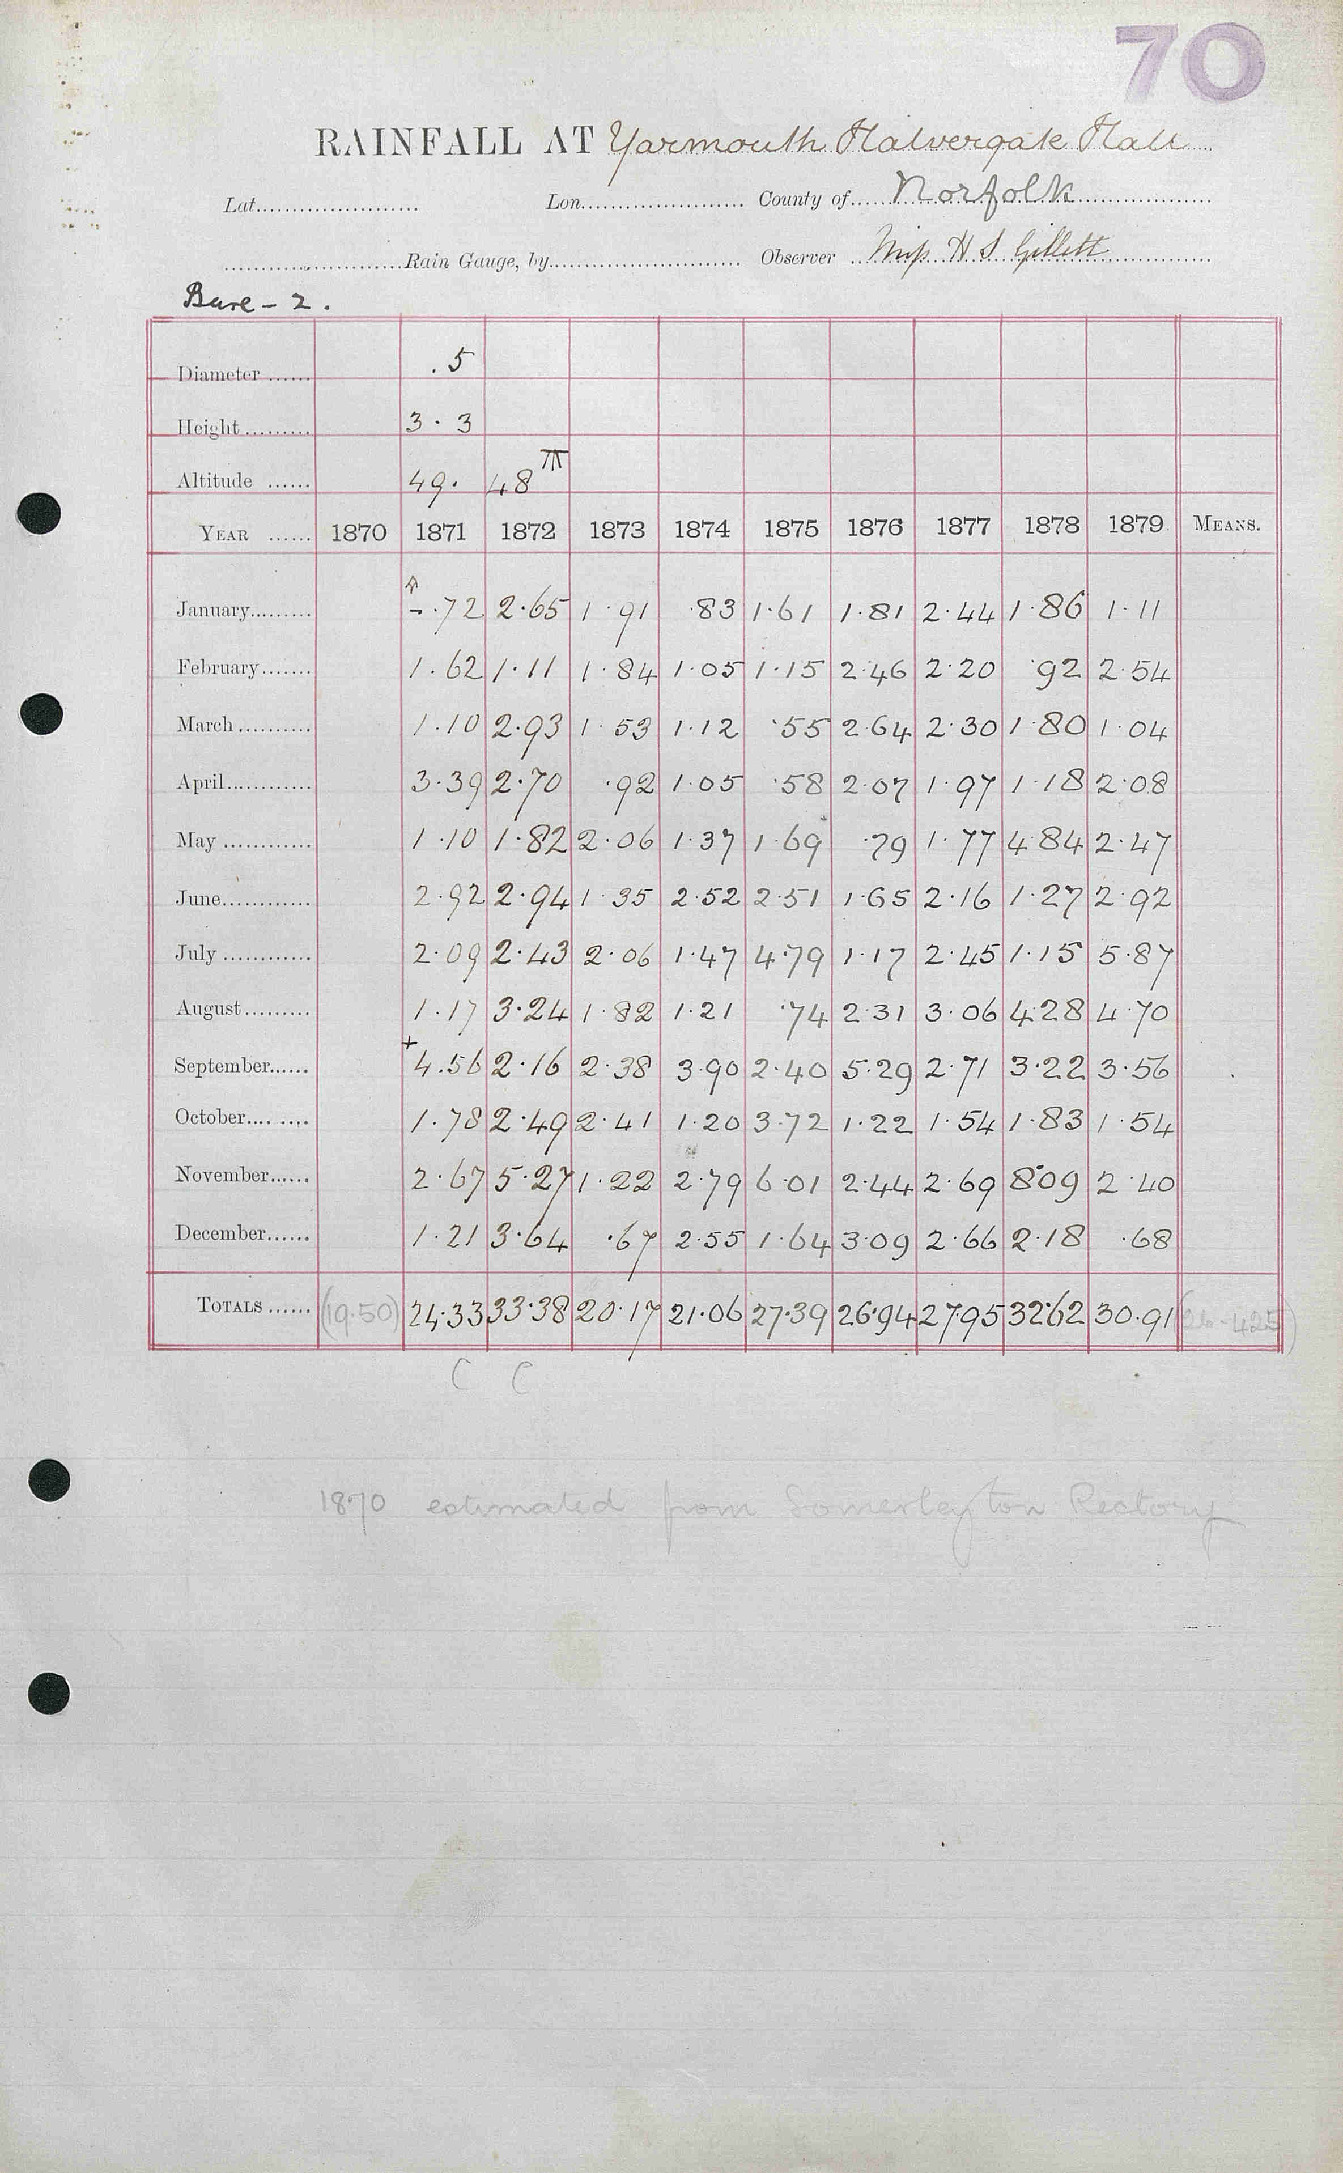 70
RAINFALL AT Yarmouth Halvergate Hall
Lat. Lon. County of Norfolk
Rain Gauge, by Observer Miss H S Gillett
Bure - 2.
Diameter .5
Height 3.3
Altitude 49. 48
YEAR 1870 1871 1872 1873 1874 1875 1876 1877 1878 1879 MEANS.
January -.72 2.65 1.91 .83 1.61 1.81 2.44 1.86 1.11
February 1.62 1.11 1.84 1.05 1.15 2.46 2.20 .92 2.54
March 1.10 2.93 1.53 1.12 .55 2.64 2.30 1.80 1.04
April 3.39 2.70 .92 1.05 .58 2.07 1.97 1.18 2.08
May 1.10 1.82 2.06 1.37 1.69 .79 1.77 4.84 2.47
June 2.92 2.94 1.35 2.52 2.51 1.65 2.16 1.27 2.92
July 2.09 2.43 2.06 1.47 4.79 1.17 2.45 1.15 5.87
August 1.17 3.24 1.82 1.21 .74 2.31 3.06 4.28 4.70
September +4.56 2.16 2.38 3.90 2.40 5.29 2.71 3.22 3.56
October 1.78 2.49 2.41 1.20 3.72 1.22 1.54 1.83 1.54
November 2.67 5.27 1.22 2.79 6.01 2.44 2.69 8.09 2.40
December 1.21 3.64 .67 2.55 1.64 3.09 2.66 2.18 .68
TOTALS (19.50) 24.33 33.38 20.17 21.06 27.39 26.94 27.95 32.62 30.91 (26.425)
C C
1870 estimated from Somerleyton Rectory